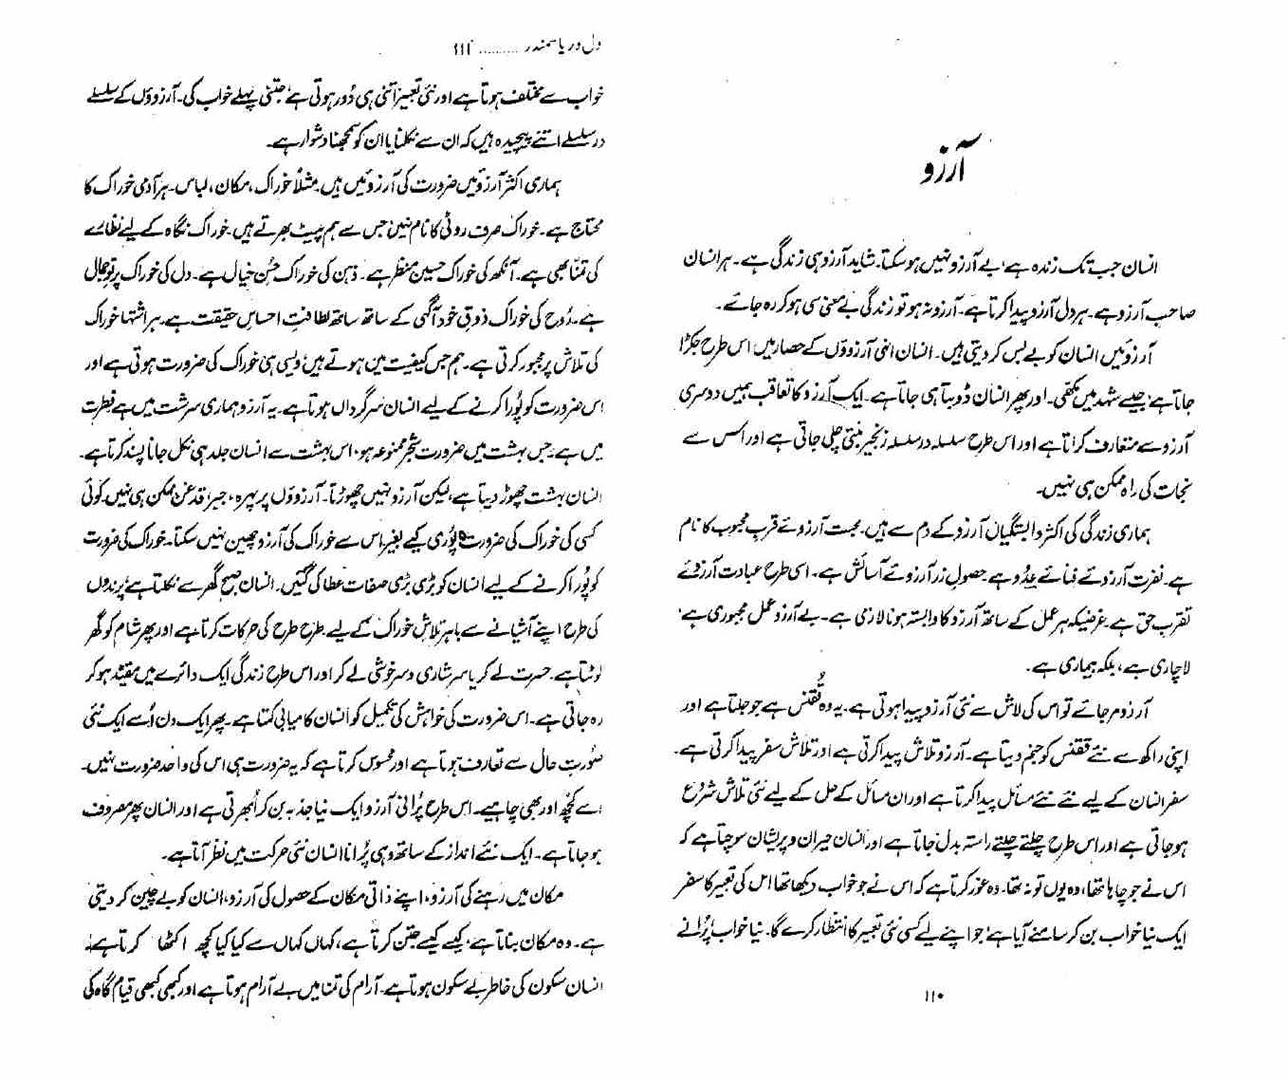 آرزو
انسان جب تک زندہ ہے، بے آرزو نہیں ہو سکتا۔ شاید آرزو ہی زندگی ہے۔ ہر انسان
صاحبِ آرزو ہے۔ ہر دل آرزو پیدا کرتا ہے۔ آرزو نہ ہو تو زندگی بے معنی سی ہو کر رہ جائے۔
آرزوئیں انسان کو بے بس کر دیتی ہیں۔ انسان اپنی آرزوؤں کے حصار میں اس طرح جکڑا
جاتا ہے، جیسے شہد میں مکھی۔ اور پھر انسان ڈوبتا ہی جاتا ہے۔ ایک آرزو کا تعاقب ہمیں دوسری
آرزو سے متعارف کراتا ہے اور اس طرح سلسلہ در سلسلہ زنجیر بنتی چلی جاتی ہے اور اس سے
نجات کی راہ ممکن ہی نہیں۔
ہماری زندگی کی اکثر وابستگیاں آرزو کے دم سے ہیں۔ محبت آرزوئے قربِ محبوب کا نام
ہے۔ نفرت آرزوئے فنائے عدو ہے۔ حصولِ زر آرزوئے آسائش ہے۔ اسی طرح عبادت آرزوئے
تقربِ حق ہے۔ غرضیکہ ہر عمل کے ساتھ آرزو کا وابستہ ہونا لازمی ہے۔ بے آرزو عمل مجبوری ہے،
لاچاری ہے، بلکہ بیماری ہے۔
آرزو مر جائے تو اس کی لاش سے نئی آرزو پیدا ہوتی ہے۔ یہ وہ ققنس ہے جو جلتا ہے اور
اپنی راکھ سے نئے ققنس کو جنم دیتا ہے۔ آرزو تلاش پیدا کرتی ہے اور تلاش سفر پیدا کرتی ہے۔
سفر انسان کے لیے نئے نئے مسائل پیدا کرتا ہے اور ان مسائل کے حل کے لیے نئی تلاش شروع
ہو جاتی ہے اور اس طرح چلتے چلتے راستہ بدل جاتا ہے اور انسان حیران و پریشان سوچتا ہے کہ
اس نے جو چاہا تھا، وہ یوں تو نہ تھا۔ وہ غور کرتا ہے کہ اس نے جو خواب دیکھا تھا اس کی تعبیر کا سفر
ایک نیا خواب بن کر سامنے آیا ہے، جو اپنے لیے کسی نئی تعبیر کا انتظار کرے گا۔ نیا خواب پرانے
۱۱۰
دل دریا سمندر .......... ۱۱۱
خواب سے مختلف ہوتا ہے اور نئی تعبیر اتنی ہی دُور ہوتی ہے، جتنی پہلے خواب کی۔ آرزوؤں کے سلسلے
در سلسلے اتنے پیچیدہ ہیں کہ ان سے نکلنا یا ان کو سمجھنا دشوار ہے۔
ہماری اکثر آرزوئیں ضرورت کی آرزوئیں ہیں۔ مثلاً خوراک، مکان، لباس۔ ہر آدمی خوراک کا
محتاج ہے۔ خوراک صرف روٹی کا نام نہیں جس سے ہم پیٹ بھرتے ہیں۔ خوراک نگاہ کے لیے نظارے
کی تمنا بھی ہے۔ آنکھ کی خوراک حسین منظر ہے۔ ذہن کی خوراک حُسنِ خیال ہے۔ دل کی خوراک پرتوِ جمال
ہے۔ رُوح کی خوراک ذوقِ خود آگہی کے ساتھ ساتھ لطافتِ احساسِ حقیقت ہے۔ ہر اشتہا خوراک
کی تلاش پر مجبور کرتی ہے۔ ہم جس کیفیت میں ہوتے ہیں، ویسی ہی خوراک کی ضرورت ہوتی ہے اور
اس ضرورت کو پُورا کرنے کے لیے انسان سرگرداں ہوتا ہے۔ یہ آرزو ہماری سرشت میں ہے، فطرت
میں ہے۔ جس بہشت میں ضرورت شجرِ ممنوعہ ہو، اس بہشت سے انسان جلد ہی نکل جانا پسند کرتا ہے۔
انسان بہشت چھوڑ دیتا ہے، لیکن آرزو نہیں چھوڑتا۔ آرزوؤں پر پہرہ، جبر، قدغن ممکن ہی نہیں۔ کوئی
کسی کی خوراک کی ضرورت پُوری کیے بغیر اس سے خوراک کی آرزو چھین نہیں سکتا۔ خوراک کی ضرورت
کو پُورا کرنے کے لیے انسان کو بڑی بڑی صفات عطا کی گئیں۔ انسان صبح گھر سے نکلتا ہے، پرندوں
کی طرح اپنے آشیانے سے باہر تلاشِ خوراک کے لیے۔ طرح طرح کی حرکات کرتا ہے اور پھر شام کو گھر
لوٹتا ہے۔ حسرت لے کر یا سرشاری و سرخوشی لے کر اور اس طرح زندگی ایک دائرے میں مقیّد ہو کر
رہ جاتی ہے۔ اس ضرورت کی خواہش کی تکمیل کو انسان کامیابی کہتا ہے۔ پھر ایک دن اُسے ایک نئی
صُورتِ حال سے تعارف ہوتا ہے اور محسوس کرتا ہے کہ یہ ضرورت ہی اس کی واحد ضرورت نہیں۔
اسے کُچھ اور بھی چاہیے۔ اس طرح پُرانی آرزو ایک نیا جذبہ بن کر اُبھرتی ہے اور انسان پھر مصروف
ہو جاتا ہے۔ ایک نئے انداز کے ساتھ وہی پُرانا انسان نئی حرکت میں نظر آتا ہے۔
مکان میں رہنے کی آرزو، اپنے ذاتی مکان کے حصول کی آرزو، انسان کو بے چین کر دیتی
ہے۔ وہ مکان بناتا ہے، کیسے کیسے جتن کرتا ہے، کہاں کہاں سے کیا کیا کچھ اکٹھا کرتا ہے۔
انسان سکون کی خاطر بے سکون ہوتا ہے۔ آرام کی تمنا میں بے آرام ہوتا ہے اور کبھی کبھی قیام گاہ کی